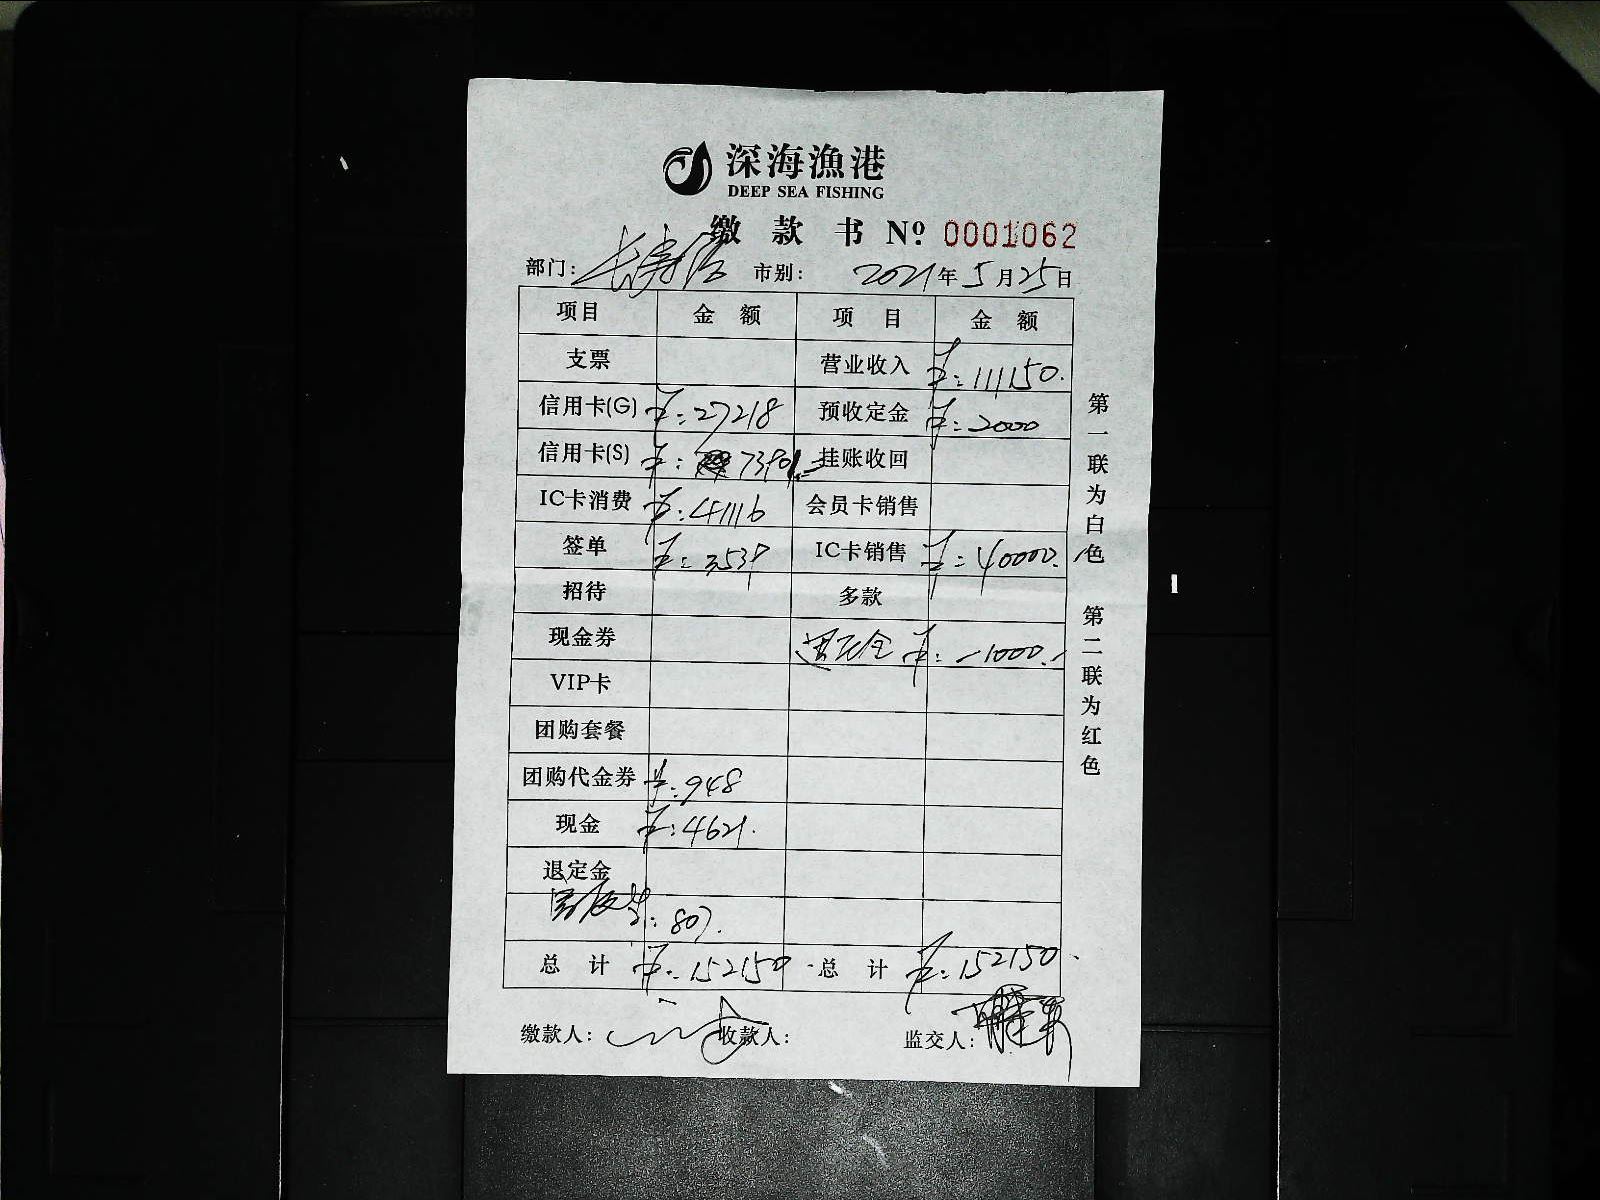 深海漁港
DEEP SEA FISHING
缴款书 Nº 0001062
部门: 长寿路 市别: 2021年5月25日
项目 金额 项目 金额
支票 营业收入 ¥:111150.
信用卡(G) ¥:27218 预收定金 ¥:2000
信用卡(S) ¥: 73901. 挂账收回
IC卡消费 ¥:41116 会员卡销售
签单 ¥:3539 IC卡销售 ¥:40000.
招待 多款
现金券 退定金 ¥:-1000.
VIP卡
团购套餐
团购代金券 ¥:948
现金 ¥:4621.
退定金
¥:807.
总计 ¥:152150 总计 ¥:152150.
缴款人: 收款人: 监交人:
第一联为白色 第二联为红色